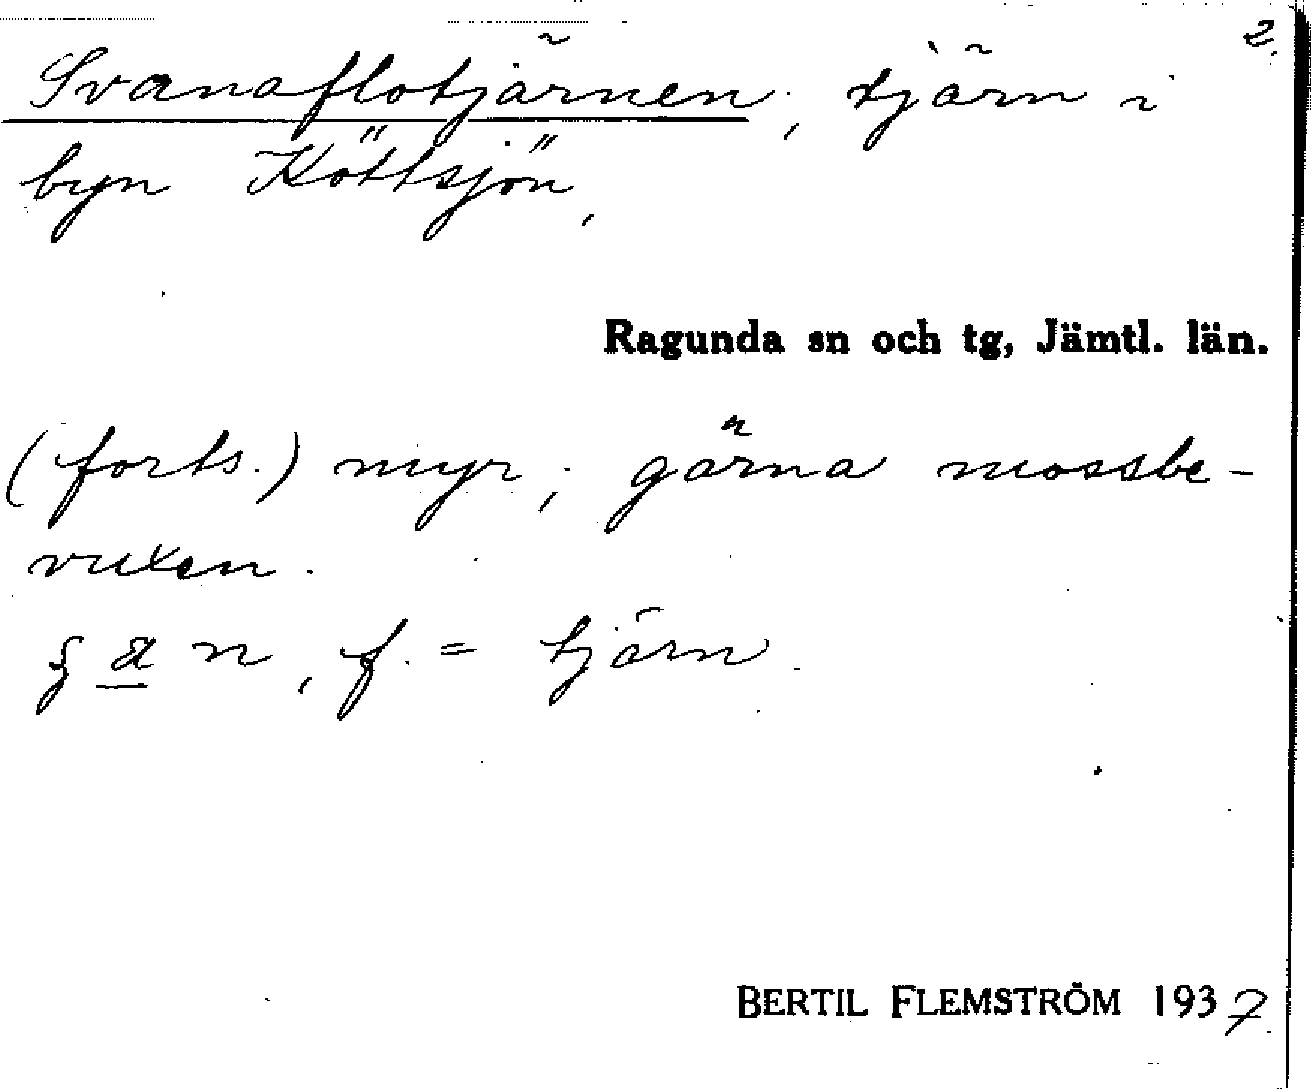 2.
Svanaflotjärnen, tjärn i
byn Köttsjön,
Ragunda sn och tg, Jämtl. län.
(forts.) myr, gärna mossbe-
vuxen.
n, f. = tjärn
BERTIL FLEMSTRÖM 1937